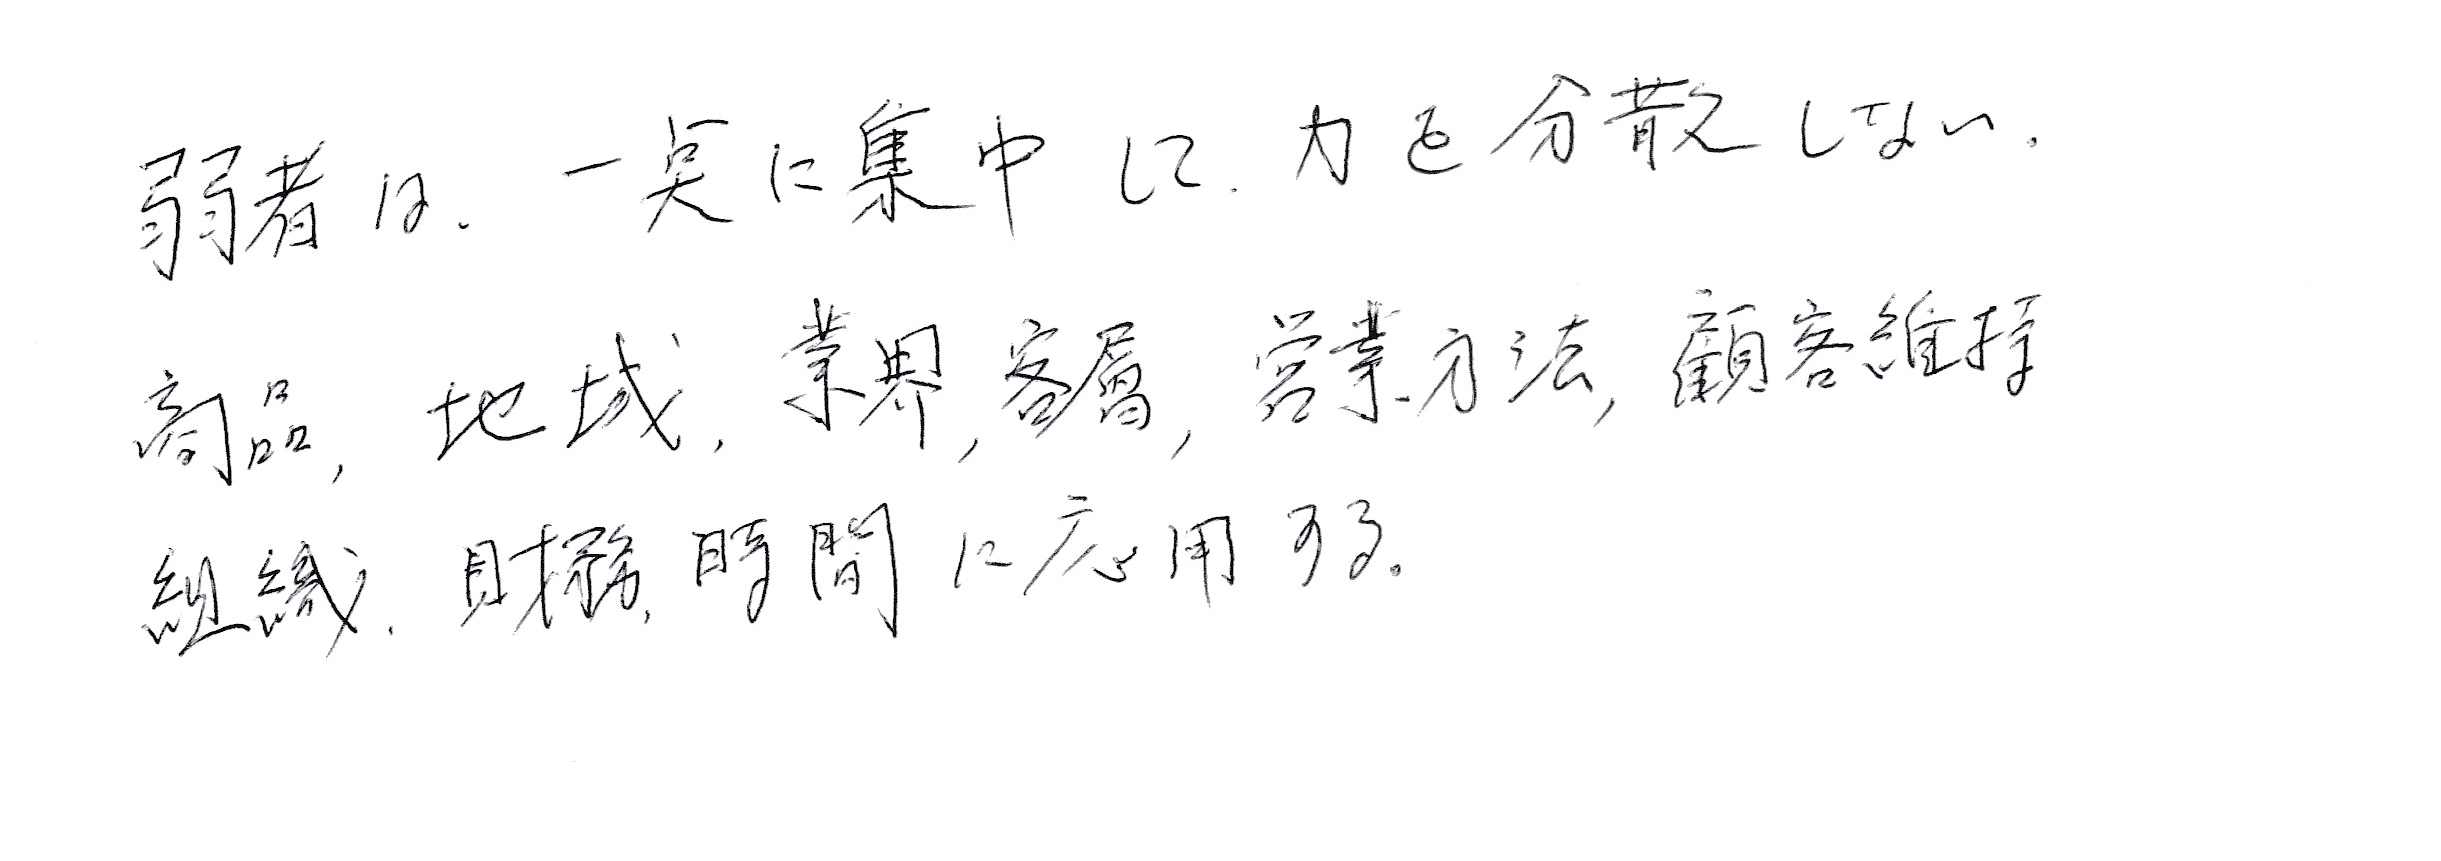 弱者は、一点に集中して、力を分散しない。
商品、地域、業界、客層、営業方法、顧客維持
組織、財務、時間に応用する。